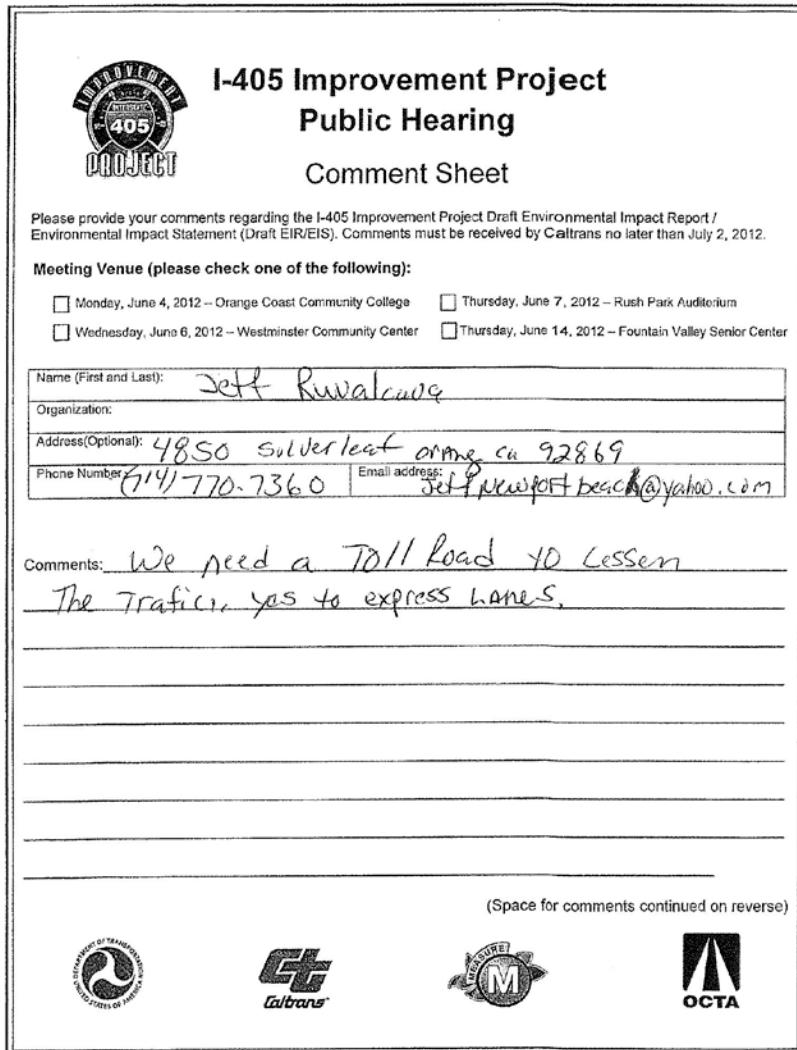 IMPROVEMENT
INTERSTATE
405
PROJECT
I-405 Improvement Project
Public Hearing
Comment Sheet
Please provide your comments regarding the I-405 Improvement Project Draft Environmental Impact Report /
Environmental Impact Statement (Draft EIR/EIS). Comments must be received by Caltrans no later than July 2, 2012.
Meeting Venue (please check one of the following):
Monday, June 4, 2012 – Orange Coast Community College
Thursday, June 7, 2012 – Rush Park Auditorium
Wednesday, June 6, 2012 – Westminster Community Center
Thursday, June 14, 2012 – Fountain Valley Senior Center
Name (First and Last): Jeff Ruvalcava
Organization:
Address(Optional): 4850 Silverleaf orange ca 92869
Phone Number: (714) 770-7360
Email address: Jeffnewportbeach@yahoo.com
Comments: We need a Toll Road to Lessen
The Trafic, yes to express Lanes.
(Space for comments continued on reverse)
DEPARTMENT OF TRANSPORTATION
UNITED STATES OF AMERICA
Ct
Caltrans
MEASURE
M
OCTA